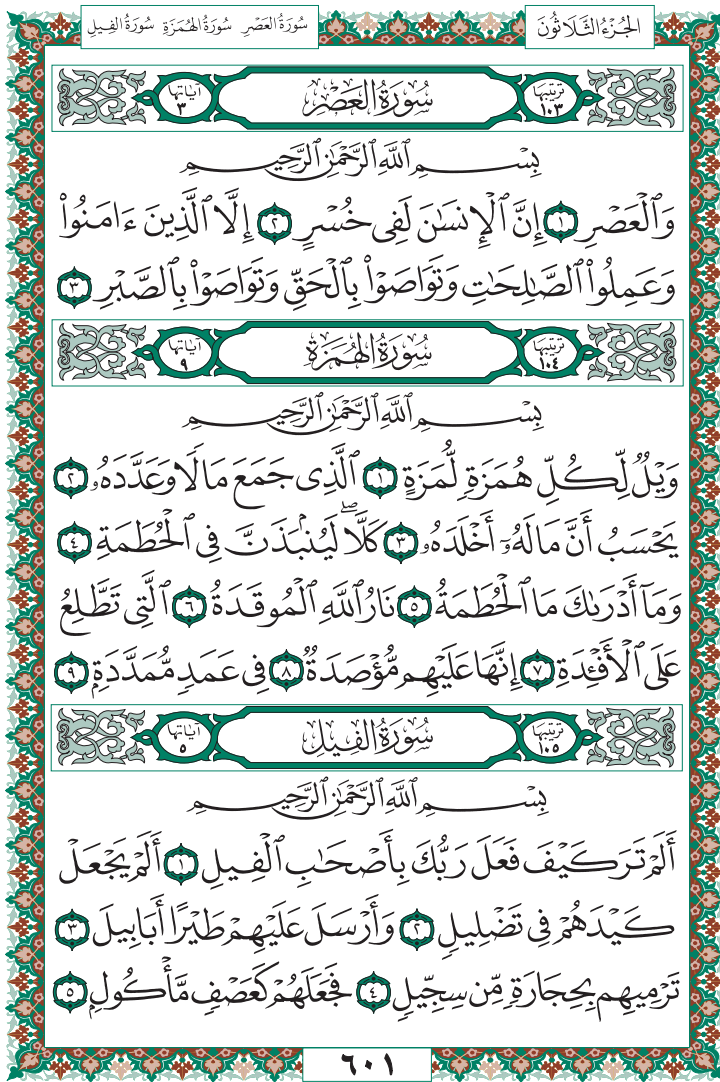 الجُزْءُ الثَّلَاثُونَ سُورَةُ العَصْرِ سُورَةُ الهُمَزَةِ سُورَةُ الفِيلِ
ترتيبها ١٠٣ سُورَةُ العَصْرِ آياتها ٣
بِسْمِ ٱللَّهِ ٱلرَّحْمَٰنِ ٱلرَّحِيمِ
وَٱلْعَصْرِ ١ إِنَّ ٱلْإِنسَٰنَ لَفِى خُسْرٍ ٢ إِلَّا ٱلَّذِينَ ءَامَنُوا۟
وَعَمِلُوا۟ ٱلصَّٰلِحَٰتِ وَتَوَاصَوْا۟ بِٱلْحَقِّ وَتَوَاصَوْا۟ بِٱلصَّبْرِ ٣
ترتيبها ١٠٤ سُورَةُ الهُمَزَةِ آياتها ٩
بِسْمِ ٱللَّهِ ٱلرَّحْمَٰنِ ٱلرَّحِيمِ
وَيْلٌ لِّكُلِّ هُمَزَةٍ لُّمَزَةٍ ١ ٱلَّذِى جَمَعَ مَالًا وَعَدَّدَهُۥ ٢
يَحْسَبُ أَنَّ مَالَهُۥٓ أَخْلَدَهُۥ ٣ كَلَّا ۖ لَيُنۢبَذَنَّ فِى ٱلْحُطَمَةِ ٤
وَمَآ أَدْرَىٰكَ مَا ٱلْحُطَمَةُ ٥ نَارُ ٱللَّهِ ٱلْمُوقَدَةُ ٦ ٱلَّتِى تَطَّلِعُ
عَلَى ٱلْأَفْـِٔدَةِ ٧ إِنَّهَا عَلَيْهِم مُّؤْصَدَةٌ ٨ فِى عَمَدٍ مُّمَدَّدَةٍۭ ٩
ترتيبها ١٠٥ سُورَةُ الفِيلِ آياتها ٥
بِسْمِ ٱللَّهِ ٱلرَّحْمَٰنِ ٱلرَّحِيمِ
أَلَمْ تَرَ كَيْفَ فَعَلَ رَبُّكَ بِأَصْحَٰبِ ٱلْفِيلِ ١ أَلَمْ يَجْعَلْ
كَيْدَهُمْ فِى تَضْلِيلٍ ٢ وَأَرْسَلَ عَلَيْهِمْ طَيْرًا أَبَابِيلَ ٣
تَرْمِيهِم بِحِجَارَةٍ مِّن سِجِّيلٍ ٤ فَجَعَلَهُمْ كَعَصْفٍ مَّأْكُولٍۭ ٥
٦٠١